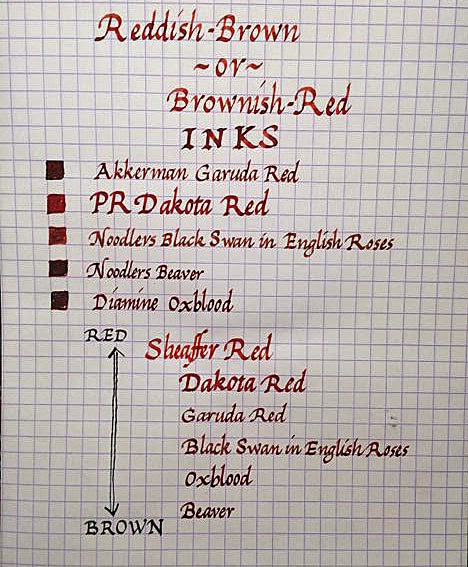 Reddish-Brown
~or~
Brownish-Red
INKS
Akkerman Garuda Red
PR Dakota Red
Noodlers Black Swan in English Roses
Noodlers Beaver
Diamine Oxblood
RED
Sheaffer Red
Dakota Red
Garuda Red
Black Swan in English Roses
Oxblood
Beaver
BROWN